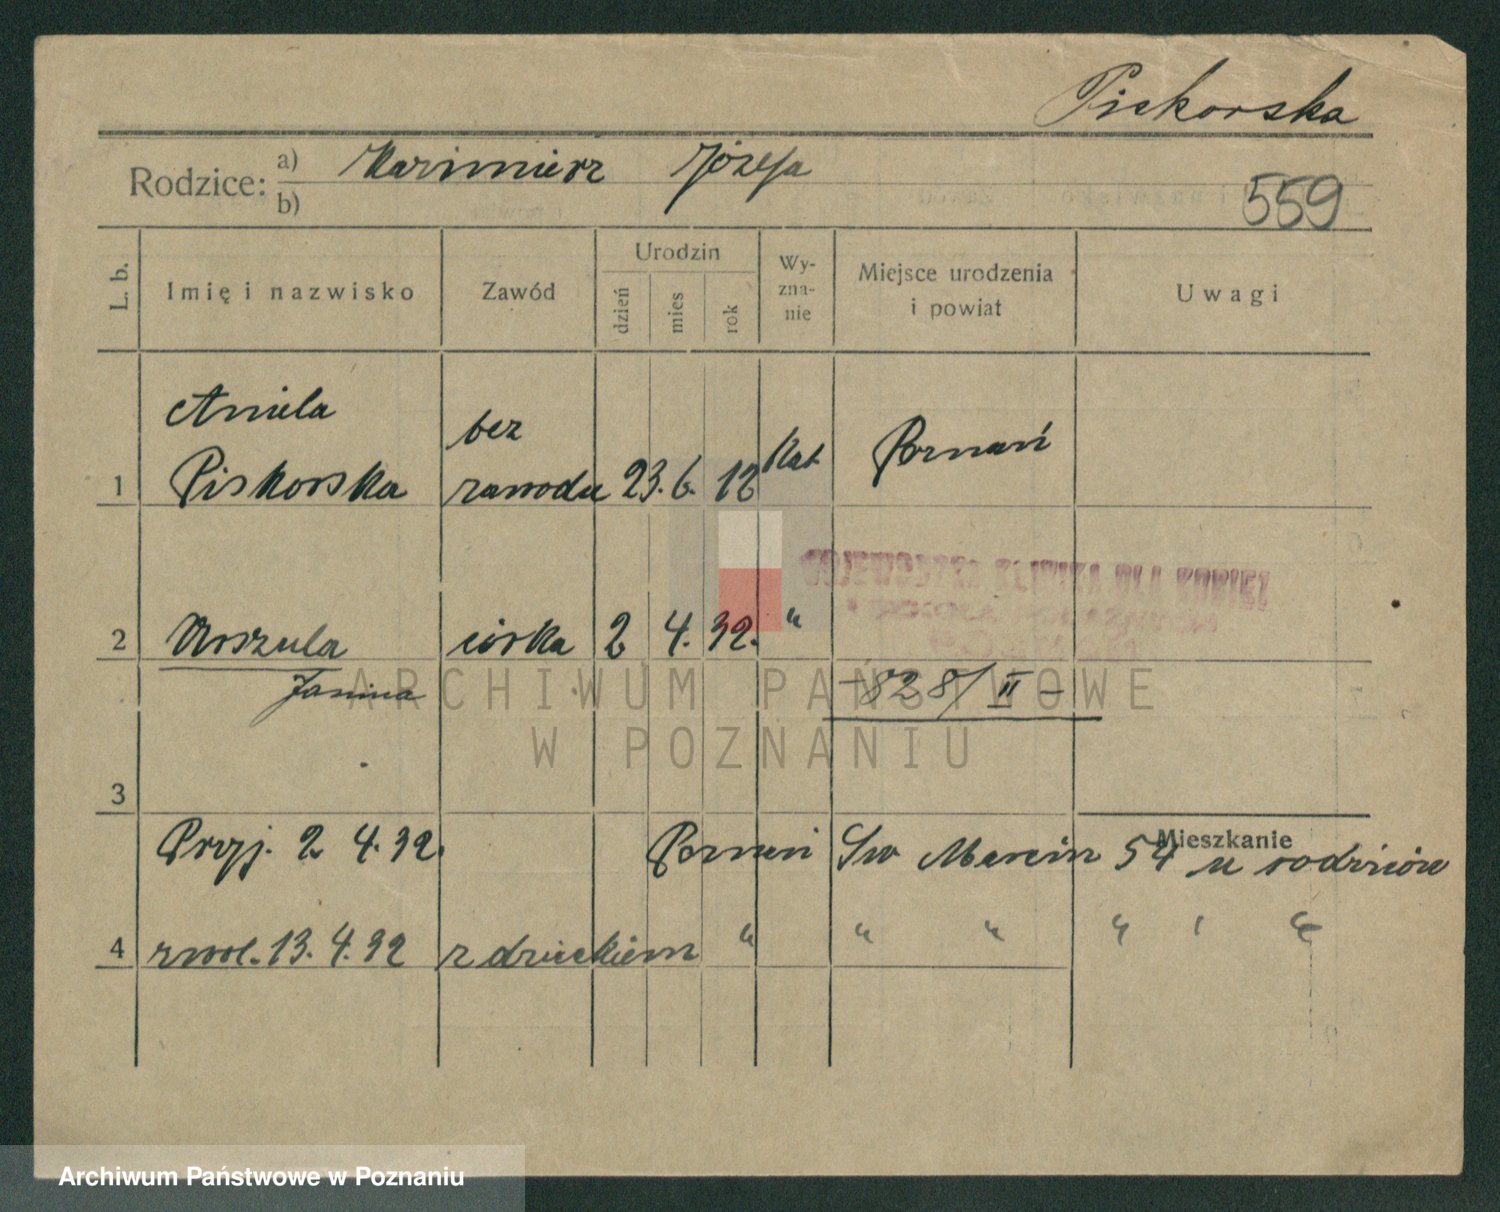 Piskorska
Rodzice: a) Kazimierz Józefa
b)
559
L. b.
Imię i nazwisko
Zawód
Urodzin
dzień
mies
rok
Wy-
zna-
nie
Miejsce urodzenia
i powiat
Uwagi
Aniela
bez
Poznań
1 Piskorska zawodu 23. 6. 12 Kat
WOJEWÓDZKA KLINIKA DLA KOBIET
2 Urszula córka 2 4. 32. "
Janina
- 828/II -
ARCHIWUM PAŃSTWOWE
W POZNANIU
3
Mieszkanie
Przyj. 2. 4. 32. Poznań Św Marcin 54 u rodziców
4 zwol. 13. 4. 32 z dzieckiem " " " " ' "
Archiwum Państwowe w Poznaniu